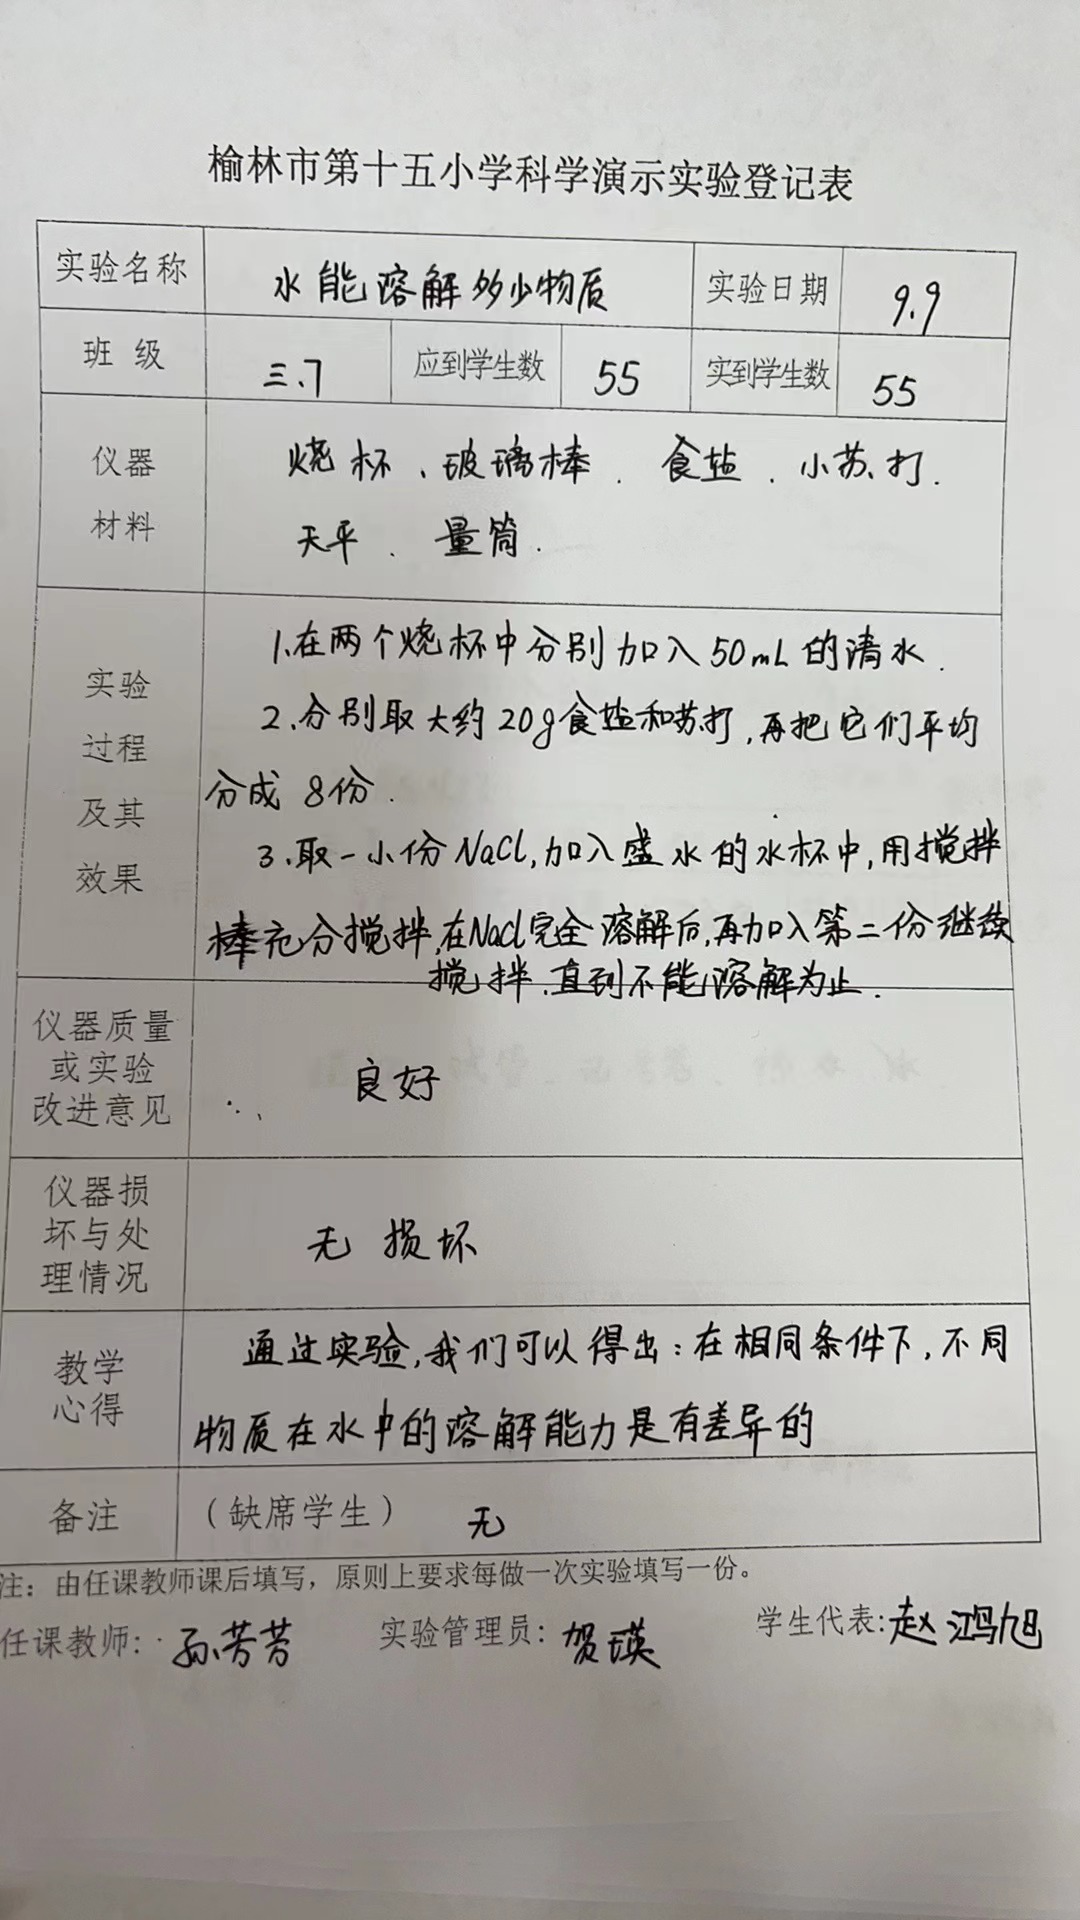 榆林市第十五小学科学演示实验登记表
实验名称 水能溶解多少物质 实验日期 9.9
班 级 三.7 应到学生数 55 实到学生数 55
仪器
材料
烧杯、玻璃棒、食盐、小苏打.
天平、量筒.
实验
过程
及其
效果
1.在两个烧杯中分别加入50mL的清水.
2.分别取大约20g食盐和苏打,再把它们平均
分成8份.
3.取一小份NaCl,加入盛水的水杯中,用搅拌
棒充分搅拌,在NaCl完全溶解后,再加入第二份继续
搅拌.直到不能溶解为止.
仪器质量
或实验
改进意见
良好
仪器损
坏与处
理情况
无损坏
教学
心得
通过实验,我们可以得出:在相同条件下,不同
物质在水中的溶解能力是有差异的
备注 (缺席学生) 无
注：由任课教师课后填写，原则上要求每做一次实验填写一份。
任课教师: 孙芳芳 实验管理员: 贺瑛 学生代表: 赵鸿旭